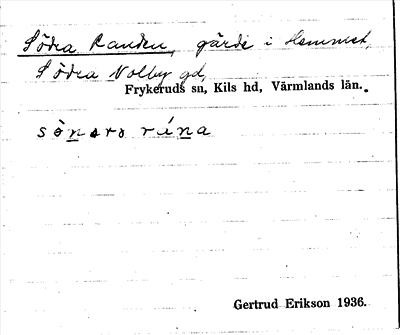 Södra Randen, gärde i Hemmet,
Södra Nolby gd,
Frykeruds sn, Kils hd, Värmlands län.
Gertrud Erikson 1936.